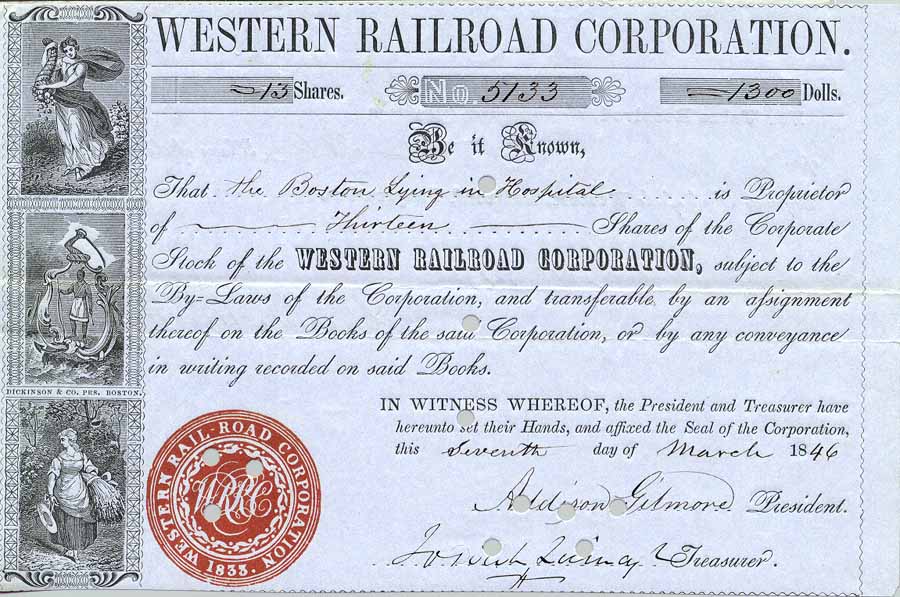 WESTERN RAILROAD CORPORATION.
=13 Shares. No. 5133 =1300 Dolls.
Be it Known,
That the Boston Lying in Hospital is Proprietor
of Thirteen Shares of the Corporate
Stock of the WESTERN RAILROAD CORPORATION, subject to the
By=Laws of the Corporation, and transferable by an aſsignment
thereof on the Books of the said Corporation, or by any conveyance
in writing recorded on said Books.
DICKINSON & CO. PRS. BOSTON.
IN WITNESS WHEREOF, the President and Treasurer have
hereunto set their Hands, and affixed the Seal of the Corporation,
this Seventh day of March 1846
Addison Gilmore President.
Josiah Quincy Jr Treasurer.
WESTERN RAIL-ROAD CORPORATION
1833.
WRRC